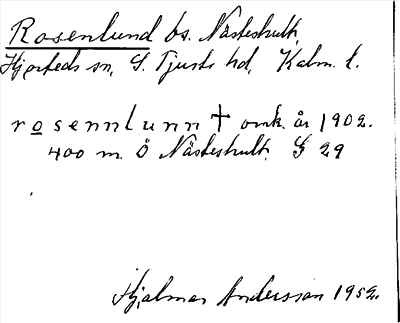 Rosenlund bs. Nästeshult,
Hjorteds sn, S. Tjusts hd, Kalm. l.
rosennlunn † omk. år 1902.
400 m. Ö Nästeshult. G 29
Hjalmar Andersson 1952.